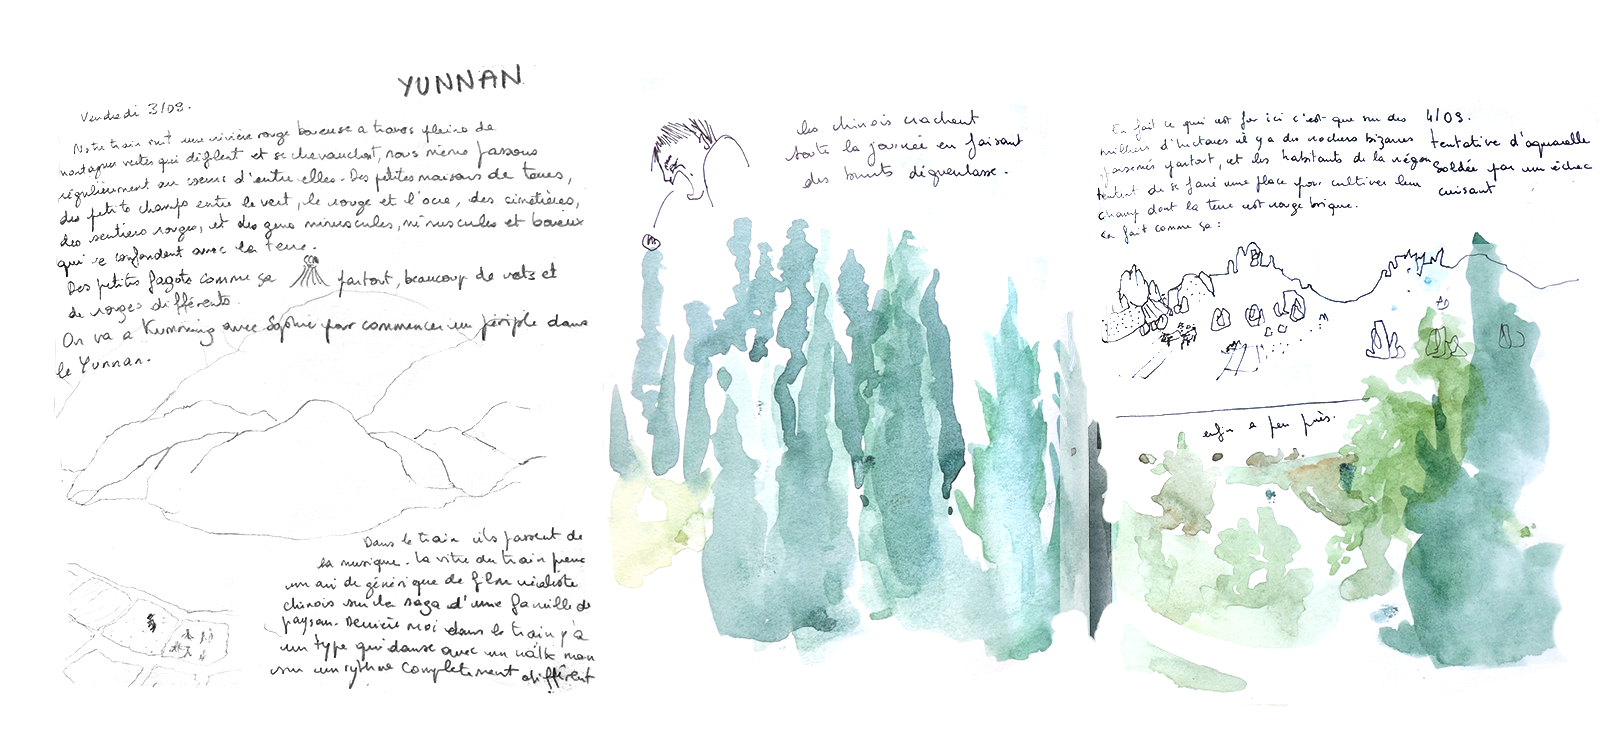 YUNNAN
Vendredi 3/09.
Notre train suit une rivière rouge boueuse a travers pleins de
montagnes vertes qui défilent et se chevauchent, nous même passons
régulièrement au coeur d'entre elles. Des petites maisons de terres,
des petits champs entre le vert, le rouge et l'ocre, des cimetières,
des sentiers rouges, et des gens minuscules, minuscules et boueux
qui se confondent avec la terre.
Des petits fagots comme ça partout, beaucoup de verts et
de rouges différents.
On va a Kunming avec Sophie pour commencer un périple dans
le Yunnan.
Dans le train ils passent de
la musique. La vitre du train prend
un air de générique de film réaliste
chinois sur la saga d'une famille de
paysan. Derrière moi dans le train y'a
un type qui danse avec un walk man
sur un rythme completement différent
les chinois crachent
toute la journée en faisant
des bruits dégueulasse.
En fait ce qui est fou ici c'est que sur des
milliers d'hectares il y a des rochers bizarres
parsemés partout, et les habitants de la région
tentent de se faire une place pour cultiver leur
champ dont la terre est rouge brique.
En fait comme ça :
4/09.
tentative d'aquarelle
Soldée par un échec
cuisant
enfin a peu près.